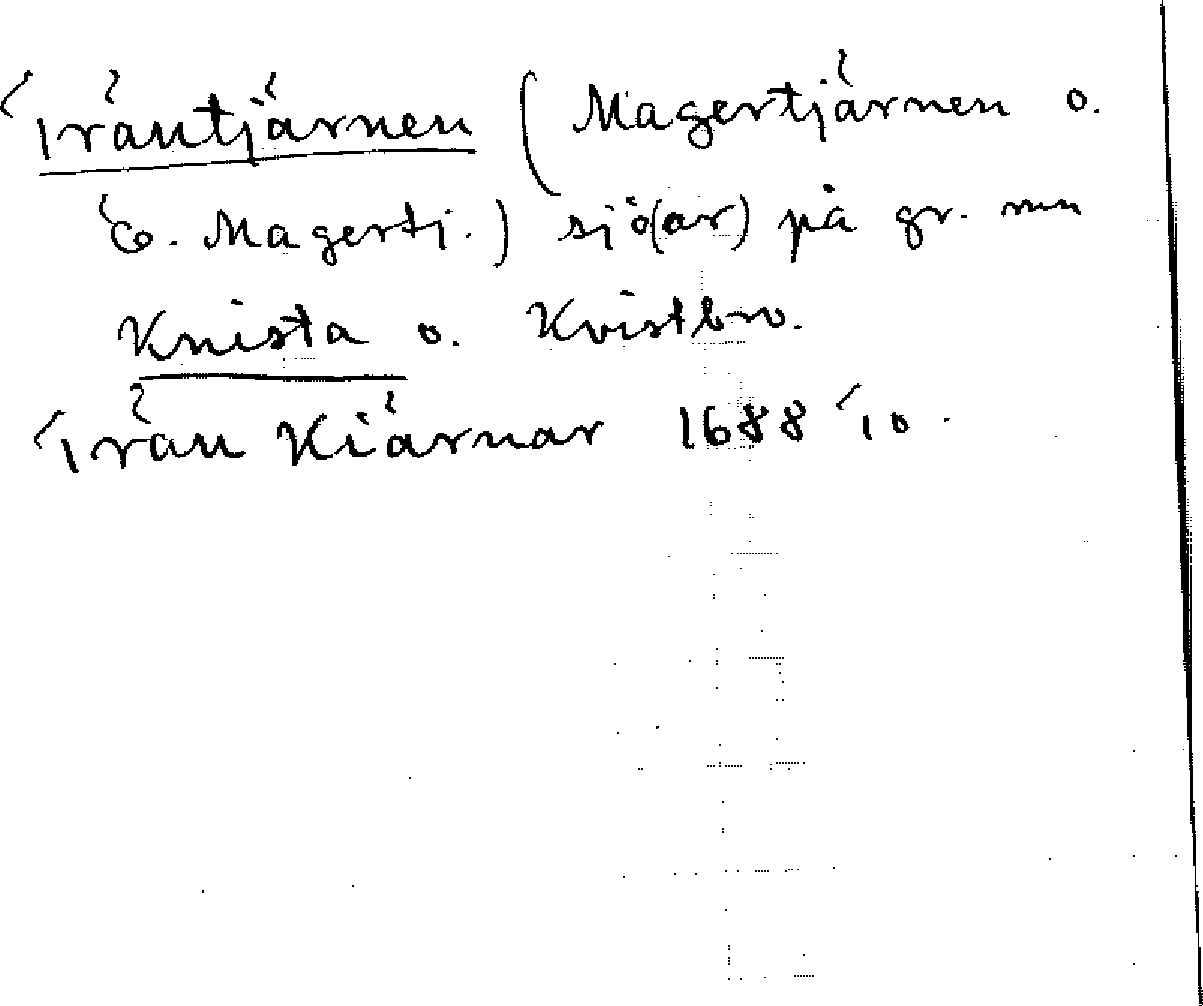 Träntjärnen (Magertjärnen o.
Ö. Magertj.) sjö(ar) på gr. mn
Knista o. Kvistbro.
Trän Kiärnar 1688